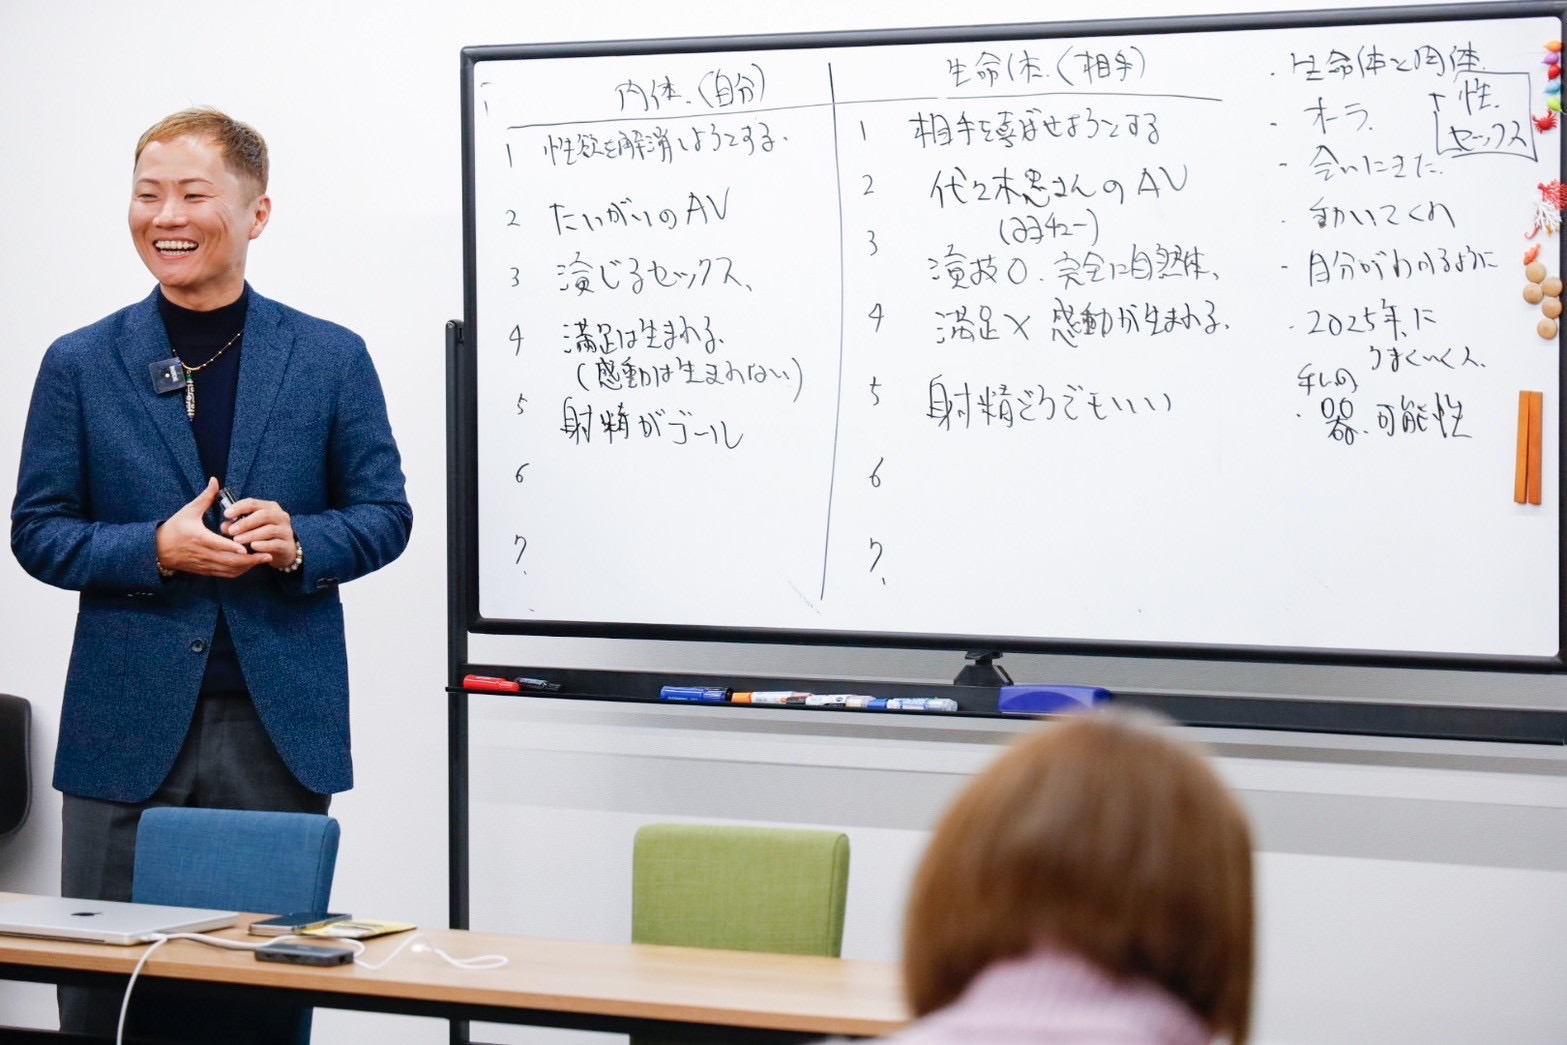 肉体.(自分)
1 性欲を解消しようとする.
2 たいがいのAV
3 演じるセックス、
4 満足は生まれる.
(感動は生まれない)
5 射精がゴール
6
7.
生命体.(相手)
1 相手を喜ばせようとする
2 代々木忠さんのAV
3 演技0.完全に自然体、
4 満足×感動が生まれる.
5 射精どうでもいい
6
7.
・生命体と肉体.
性.
セックス
- オーラ.
- 会いにきた.
・動いてくれ
- 自分がわかるように
・2025年.に
うまくいく人.
私の
・器.可能性